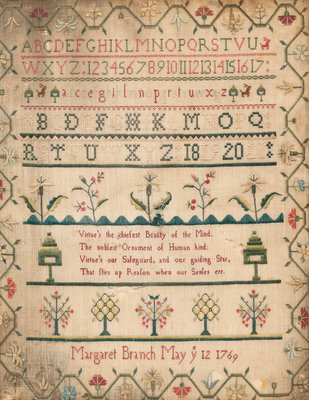 ABCDEFGHIKLMNOPQRSTVU
WXYZ:1234567891011121314151617
acegilnprtuxz
BDFHKMOQ
RTUXZ1820
Virtue's the chiefest Beauty of the Mind.
The noblest Ornament of Human kind:
Virtue's our Safeguard, and our guiding Star,
That stirs up Reason when our Senses err.
Margaret Branch May ye 12 1769